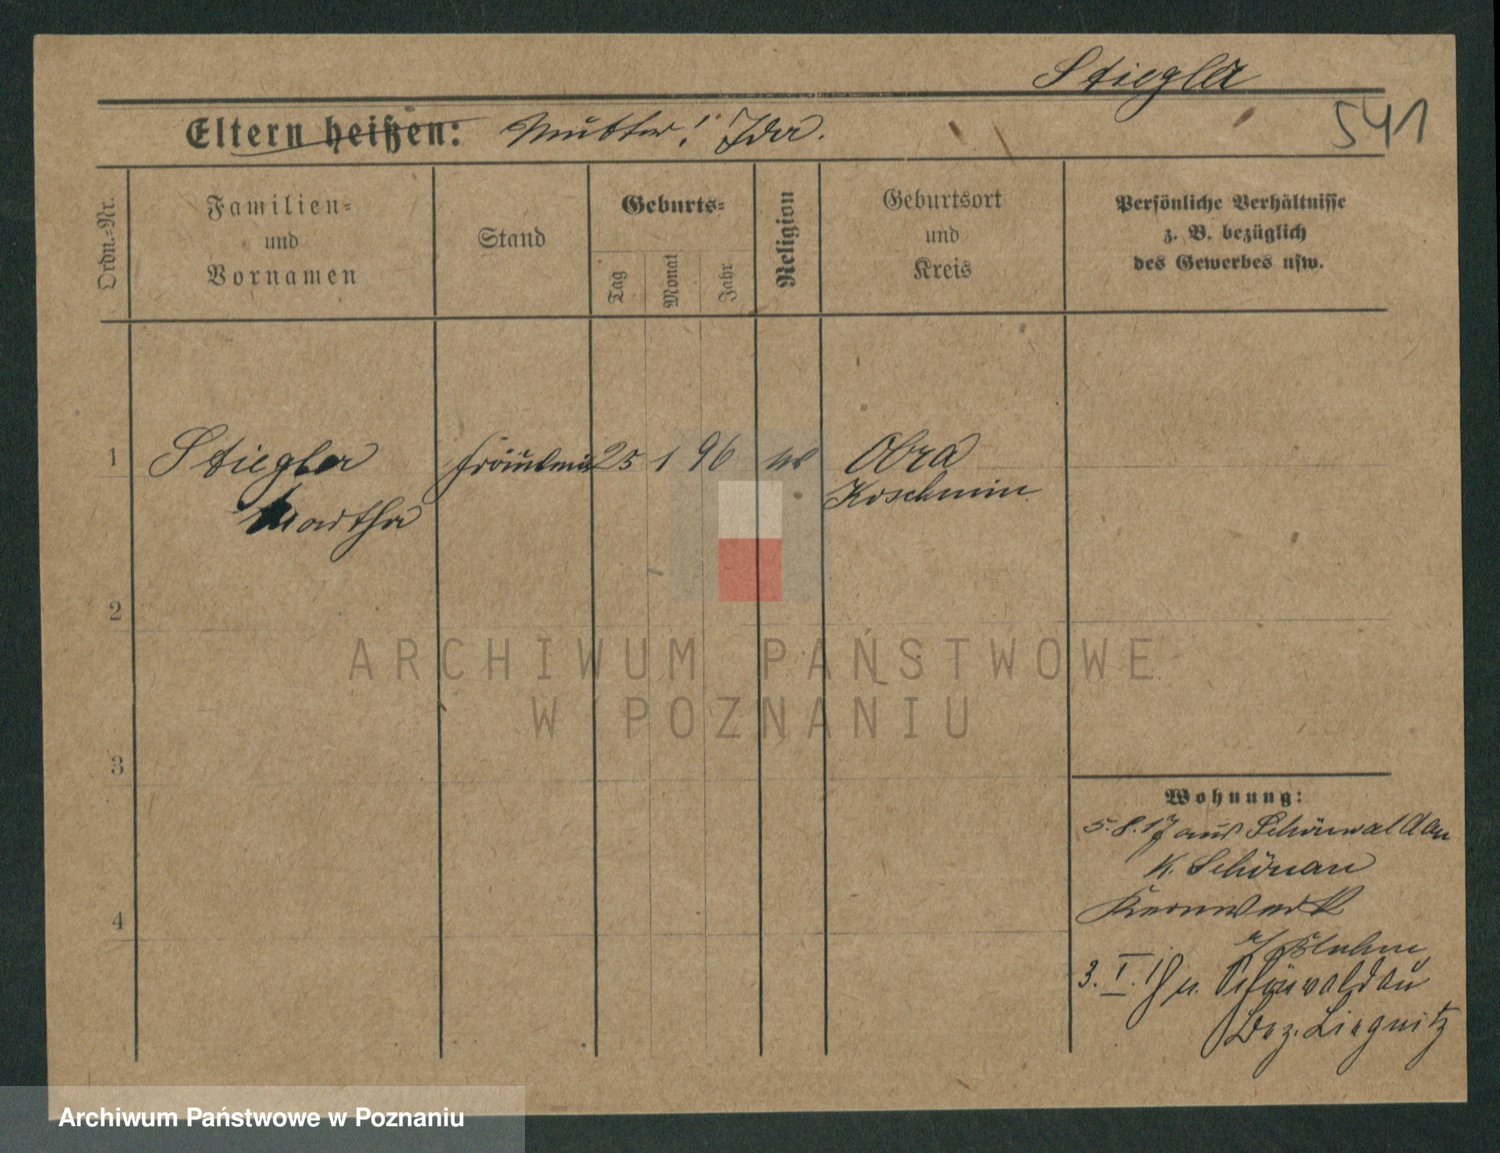 Stiegler
541
Eltern heißen: Mutter! Ida.
Ordn.-Nr.
Familien-
und
Vornamen
Stand
Geburts-
Tag
Monat
Jahr
Religion
Geburtsort
und
Kreis
Persönliche Verhältnisse
z. B. bezüglich
des Gewerbes usw.
1 Stiegler Fräulein 25 1 96 Obra
Martha Koschmin
2
ARCHIWUM PAŃSTWOWE
W POZNANIU
3
Wohnung:
5.8.17 aus Schönwaldau
K. Schönau
Kernwerk
4
3. I. 18 n. Schönwaldau
Bez. Liegnitz
Archiwum Państwowe w Poznaniu